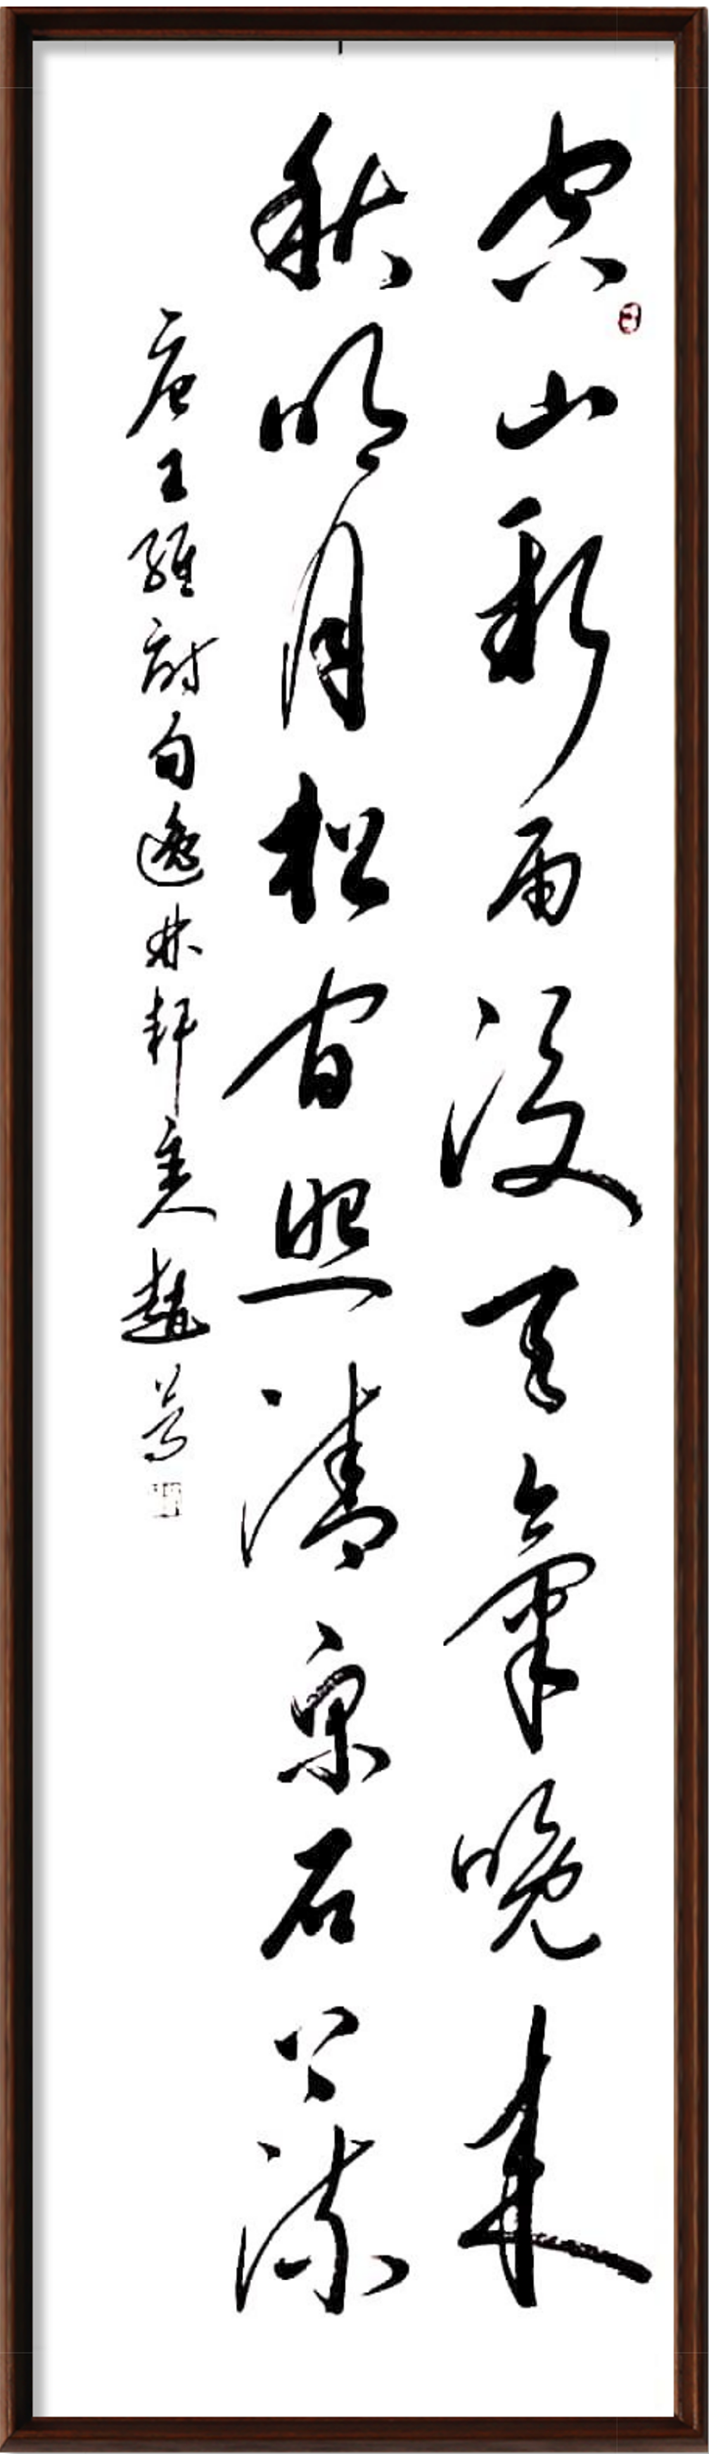 空山新雨後天氣晚來
秋明月松間照清泉石上流
唐王維詩句逸林軒主人趙